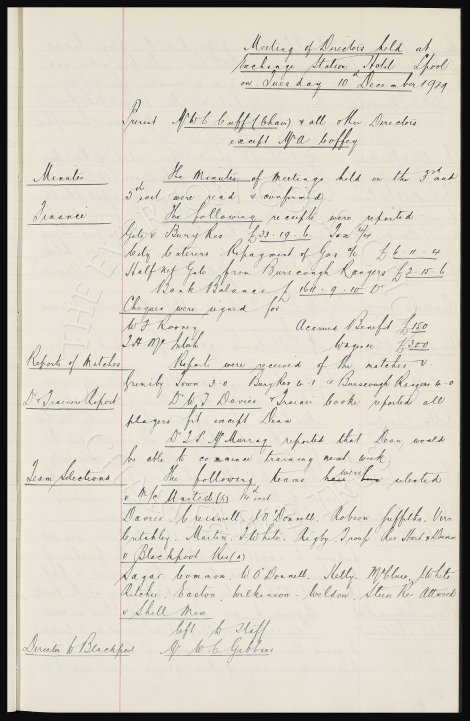 Meeting of Directors held at
Exchange Station Hotel Lpool
on Tuesday 10th December 1929
Present Mr W C Cuff (Chair) & all other Directors
except Mr A Coffey
Minutes
The Minutes of Meetings held on the 3rd and
3rd inst were read & confirmed
Finance
The following receipts were reported
Gate v Bury Res £33-19-6
City Caterers Repayment of Gas a/c £6-11-4
Half nef Gate from Burscough Rangers £2-15-6
Bank Balance £1611-9-10
Cheques were signed for
W J Rooney Accrued Benefit £150
T H McIntosh Wages £300
Reports of Matches
Reports were received of the matches v
Grimsby Town 3-0 Bury Res 4-1 & Burscough Rangers 4-0
Dr & Trainers Report
Dr C J Davies & Trainer Cooke reported all
players fit except Dean
Dr T S McMurray reported that Dean would
be able to commence training next week
Team Selections
The following teams were selected
v M/c United (h) 14th inst
Davies Cresswell J O'Donnell Robson Griffiths Virr
Critchley Martin T White Rigby Troup Res Hart & Dunn
v Blackpool Res (a)
Sagar Common W O'Donnell Kelly McClure J White
Ritchie Easton Wilkinson Weldon Stein Res Attwood
v Shell Mex
Left to Staff
Director to Blackpool
Mr W C Gibbins